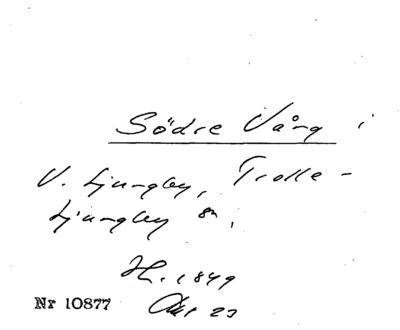 Södre Vång i
V. Ljungby, Trolle-
Ljungby sn.
H. 1849
Akt 23
Nr 10877